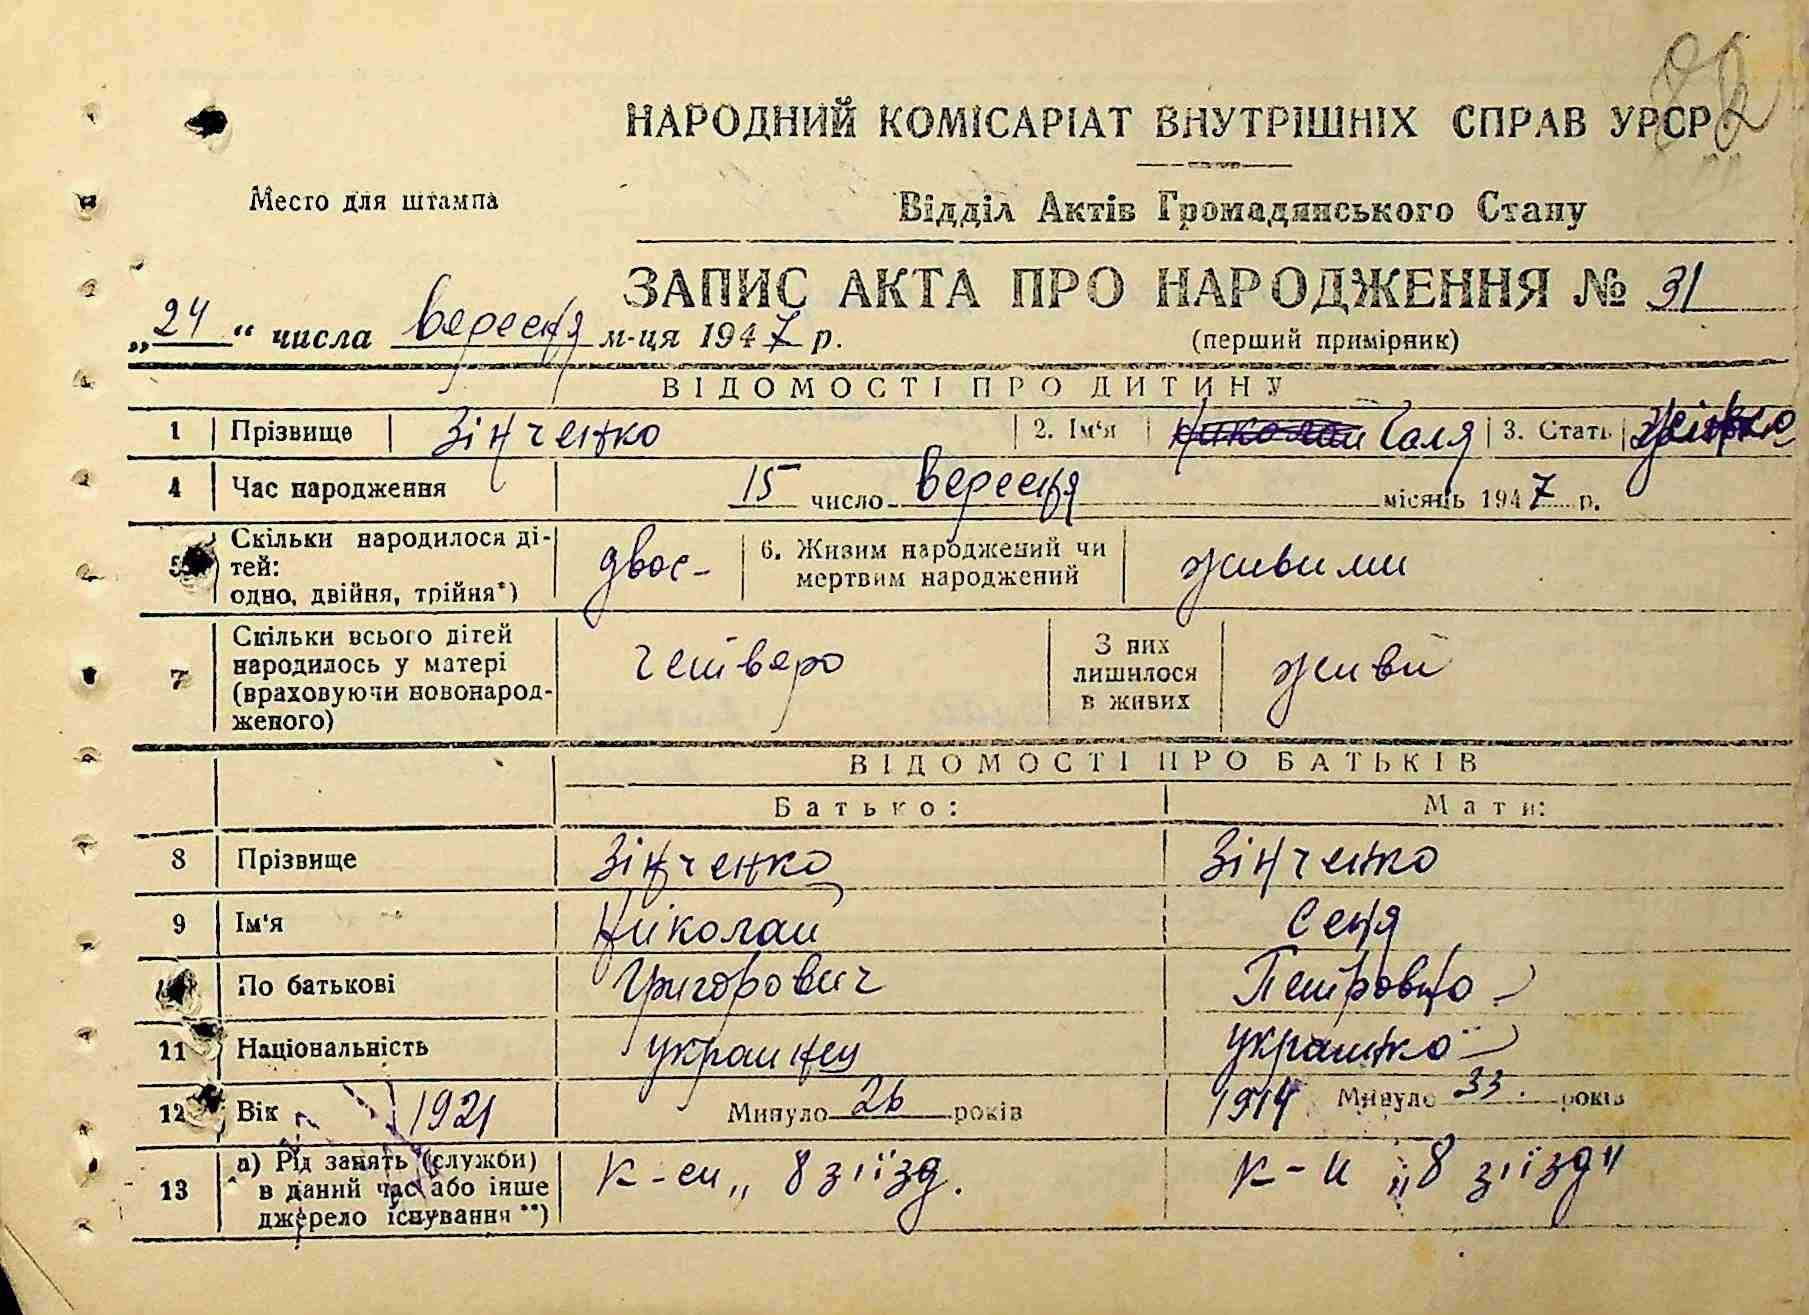 НАРОДНИЙ КОМІСАРІАТ ВНУТРІШНІХ СПРАВ УРСР
Место для штампа
Відділ Актів Громадянського Стану
ЗАПИС АКТА ПРО НАРОДЖЕННЯ № 31
„24“ числа вересня м-ця 1947 р.
(перший примірник)
ВІДОМОСТІ ПРО ДИТИНУ
1 Прізвище Зінченко 2. Ім'я Николай Галя 3. Стать
4 Час народження 15 число вересня місяць 1947 р.
5 Скільки народилося дітей: двоє 6. Живим народжений чи
одно, двійня, трійня*) мертвим народжений живими
7 Скільки всього дітей
народилось у матері четверо З них
(враховуючи новонарод- лишилося живі
женого) в живих
ВІДОМОСТІ ПРО БАТЬКІВ
Батько: Мати:
8 Прізвище Зінченко Зінченко
9 Ім'я Николай Сеня
10 По батькові Григорович Петровно
11 Національність украинец украинко
12 Вік 1921 Минуло 26 років 1914 Минуло 33. років
13 а) Рід занять (служби)
в даний час або інше к-си „8 зїізд. к-и „8 зїізд"
джерело існування**)